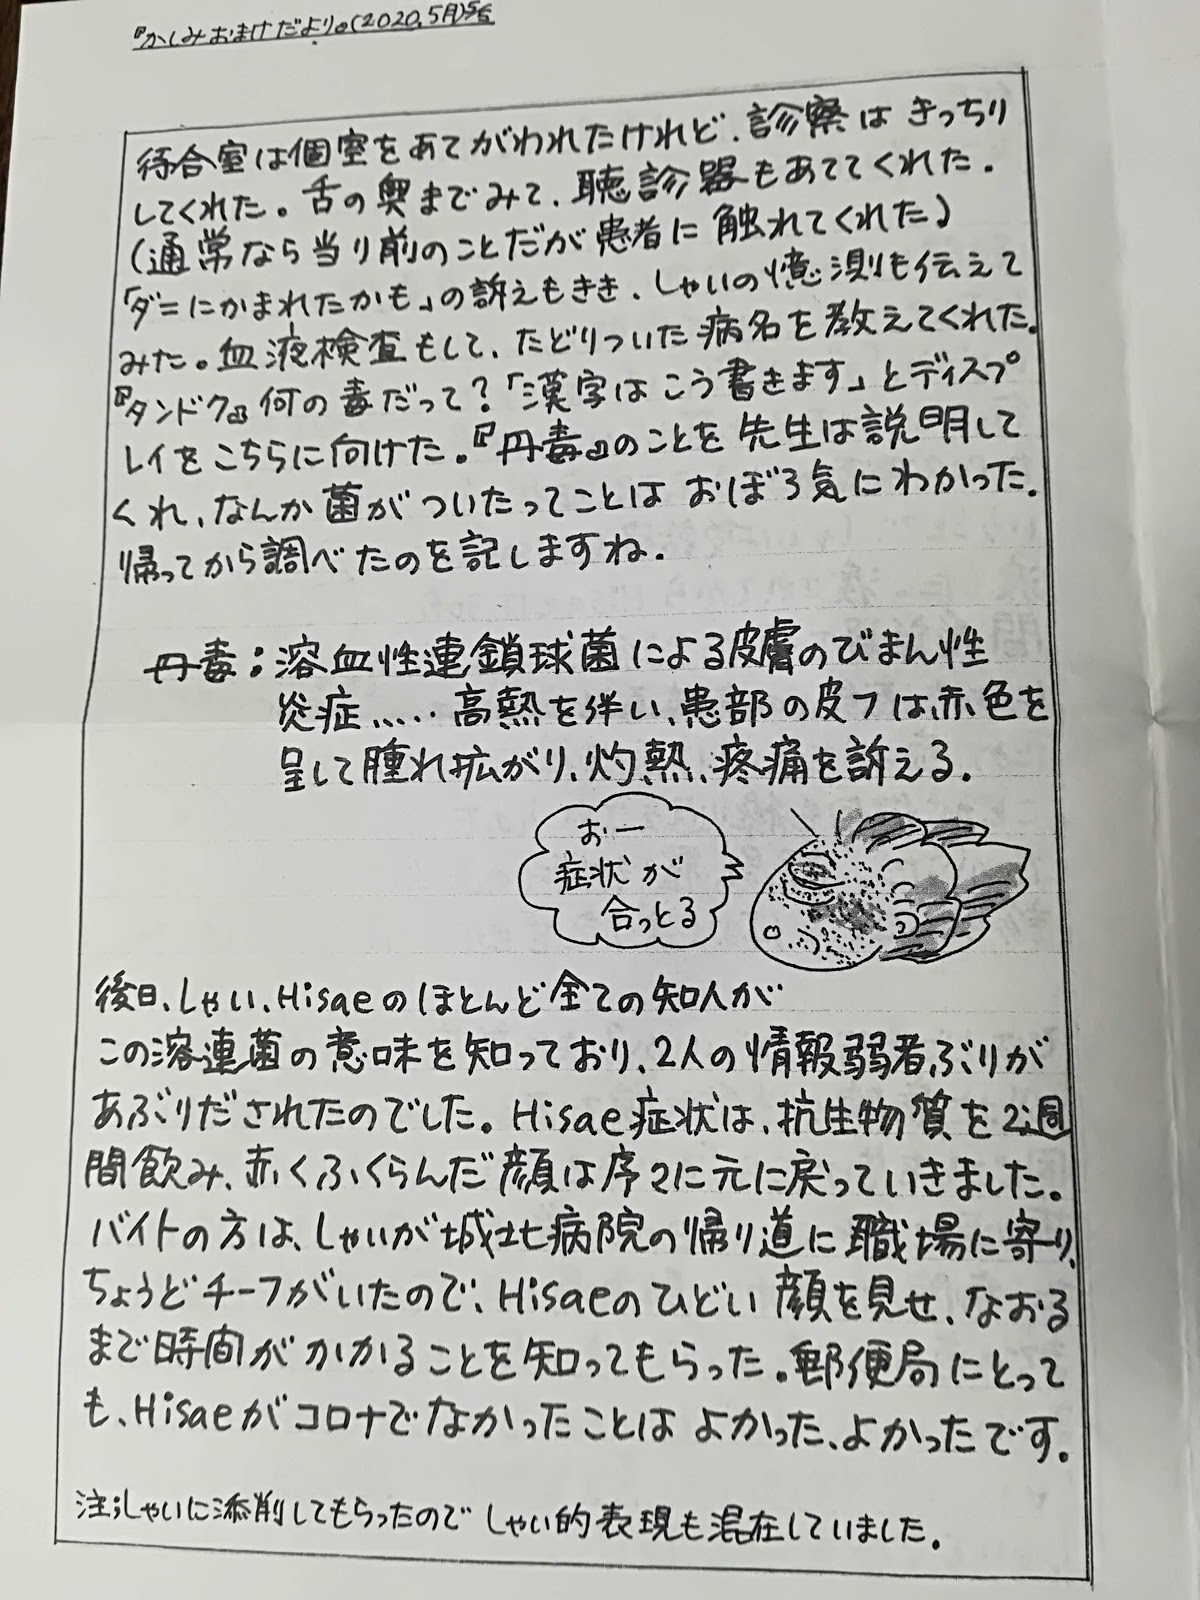 『かしみおまけだより』(2020.5月)号
待合室は個室をあてがわれたけれど、診察はきっちり
してくれた。舌の奥までみて、聴診器もあててくれた。
(通常なら当り前のことだが患者に触れてくれた)
「ダニにかまれたかも」の訴えもきき、しゃいの憶測も伝えて
みた。血液検査もして、たどりついた病名を教えてくれた。
『タンドク』何の毒だって?「漢字はこう書きます」とディスプ
レイをこちらに向けた。『丹毒』のことを先生は説明して
くれ、なんか菌がついたってことはおぼろ気にわかった。
帰ってから調べたのを記しますね。
丹毒:溶血性連鎖球菌による皮膚のびまん性
炎症..... 高熱を伴い、患部の皮フは赤色を
呈して腫れ拡がり、灼熱、疼痛を訴える。
おー
症状が
合っとる
後日、しゃい、Hisaeのほとんど全ての知人が
この溶連菌の意味を知っており、2人の情報弱者ぶりが
あぶりだされたのでした。Hisae症状は、抗生物質を2週
間飲み、赤くふくらんだ顔は序々に元に戻っていきました。
バイトの方は、しゃいが城北病院の帰り道に職場に寄り、
ちょうどチーフがいたので、Hisaeのひどい顔を見せ、なおる
まで時間がかかることを知ってもらった。郵便局にとって
も、Hisaeがコロナでなかったことはよかった、よかったです。
注;しゃいに添削してもらったのでしゃい的表現も混在していました。